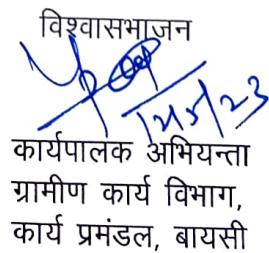 विश्वासभाजन
कार्यपालक अभियन्ता
ग्रामीण कार्य विभाग,
कार्य प्रमंडल, बायसी